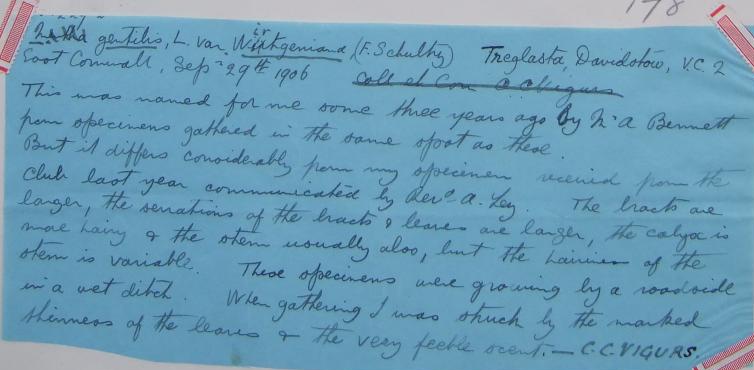 178
Mentha gentilis, L. var. Wirtgeniana (F. Schultz) Treglasta, Davidstow, V.C. 2
East Cornwall, Sepr 29th 1906 Coll et Com C C Vigurs
This was named for me some three years ago by Mr A Bennett
from specimens gathered in the same spot as these.
But it differs considerably from my specimen received from the
Club last year communicated by Revd A. Ley. The bracts are
larger, the serrations of the bracts & leaves are larger, the calyx is
more hairy & the stem usually also, but the hairiness of the
stem is variable. These specimens were growing by a roadside
in a wet ditch. When gathering I was struck by the marked
thinness of the leaves & the very feeble scent. — C.C. VIGURS.